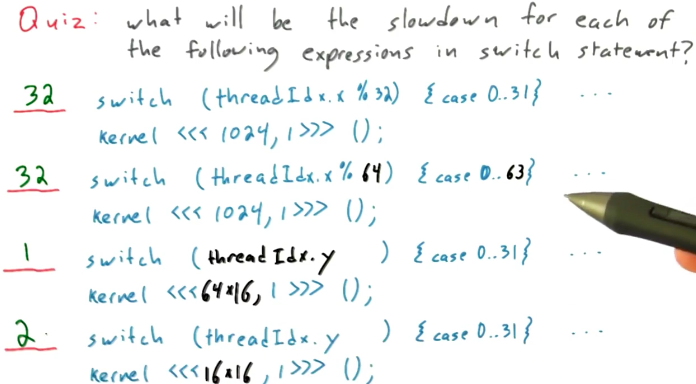 Quiz: what will be the slowdown for each of
the following expressions in switch statement?
32 switch (threadIdx.x % 32) { case 0..31} ...
kernel <<< 1024, 1 >>> ();
32 switch (threadIdx.x % 64) { case 0..63} ...
kernel <<< 1024, 1 >>> ();
1 switch (threadIdx.y ) { case 0..31} ...
kernel <<< 64*16, 1 >>> ();
2 switch (threadIdx.y ) { case 0..31} ...
kernel <<< 16*16, 1 >>> ();